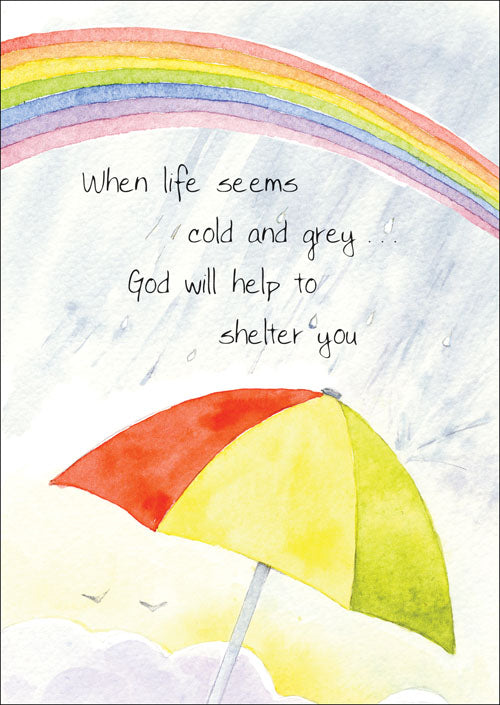 When life seems
cold and grey...
God will help to
shelter you